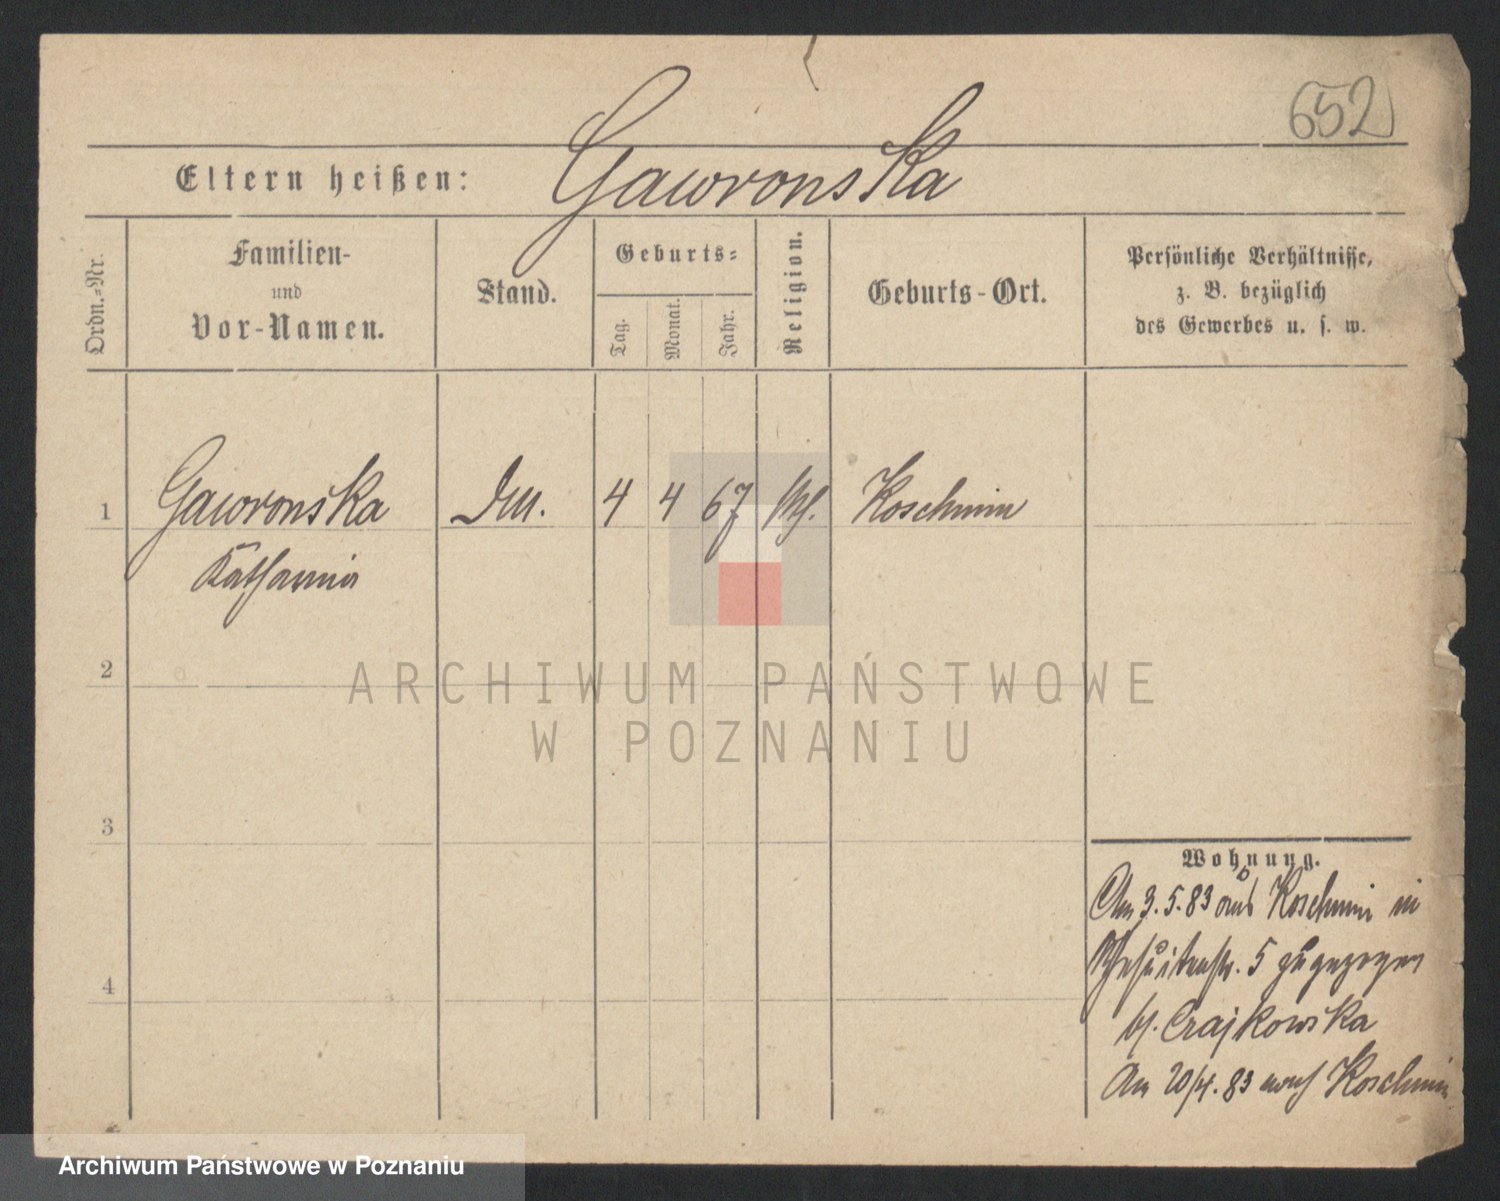 652
Eltern heißen: Gawronska
Ordn.-Nr.
Familien-
und
Vor-Namen.
Stand.
Geburts-
Tag.
Monat.
Jahr.
Religion.
Geburts-Ort.
Persönliche Verhältnisse,
z. B. bezüglich
des Gewerbes u. s. w.
1 Gawronska 4 4 67 Koschmin
Katharina
2
3
4
Wohnung.
Am 3.5.83 aus Koschmin in
5 zugezogen
bj. Crajkowska
Am 20/4.83 nach Koschmin
ARCHIWUM PAŃSTWOWE
W POZNANIU
Archiwum Państwowe w Poznaniu